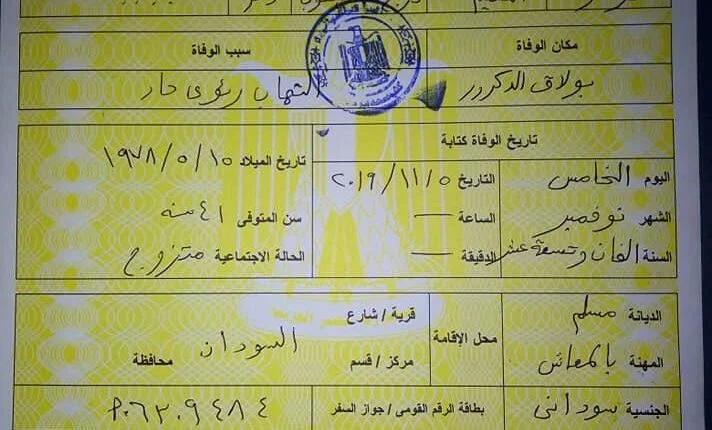 مكان الوفاة
سبب الوفاة
بولاق الدكرور
التهاب رئوى حاد
تاريخ الوفاة كتابة
تاريخ الميلاد ١٩٧٨/٥/١٥
اليوم الخامس
التاريخ ٢٠١٩/١١/٥
الشهر نوفمبر
الساعة —
سن المتوفى ٤١ سنه
السنة الفان وتسعة عشر
الدقيقة —
الحالة الاجتماعية متزوج
الديانة مسلم
محل الإقامة
قرية / شارع
السودان
المهنة بالمعاش
مركز / قسم
محافظة
الجنسية سودانى
بطاقة الرقم القومى / جواز السفر